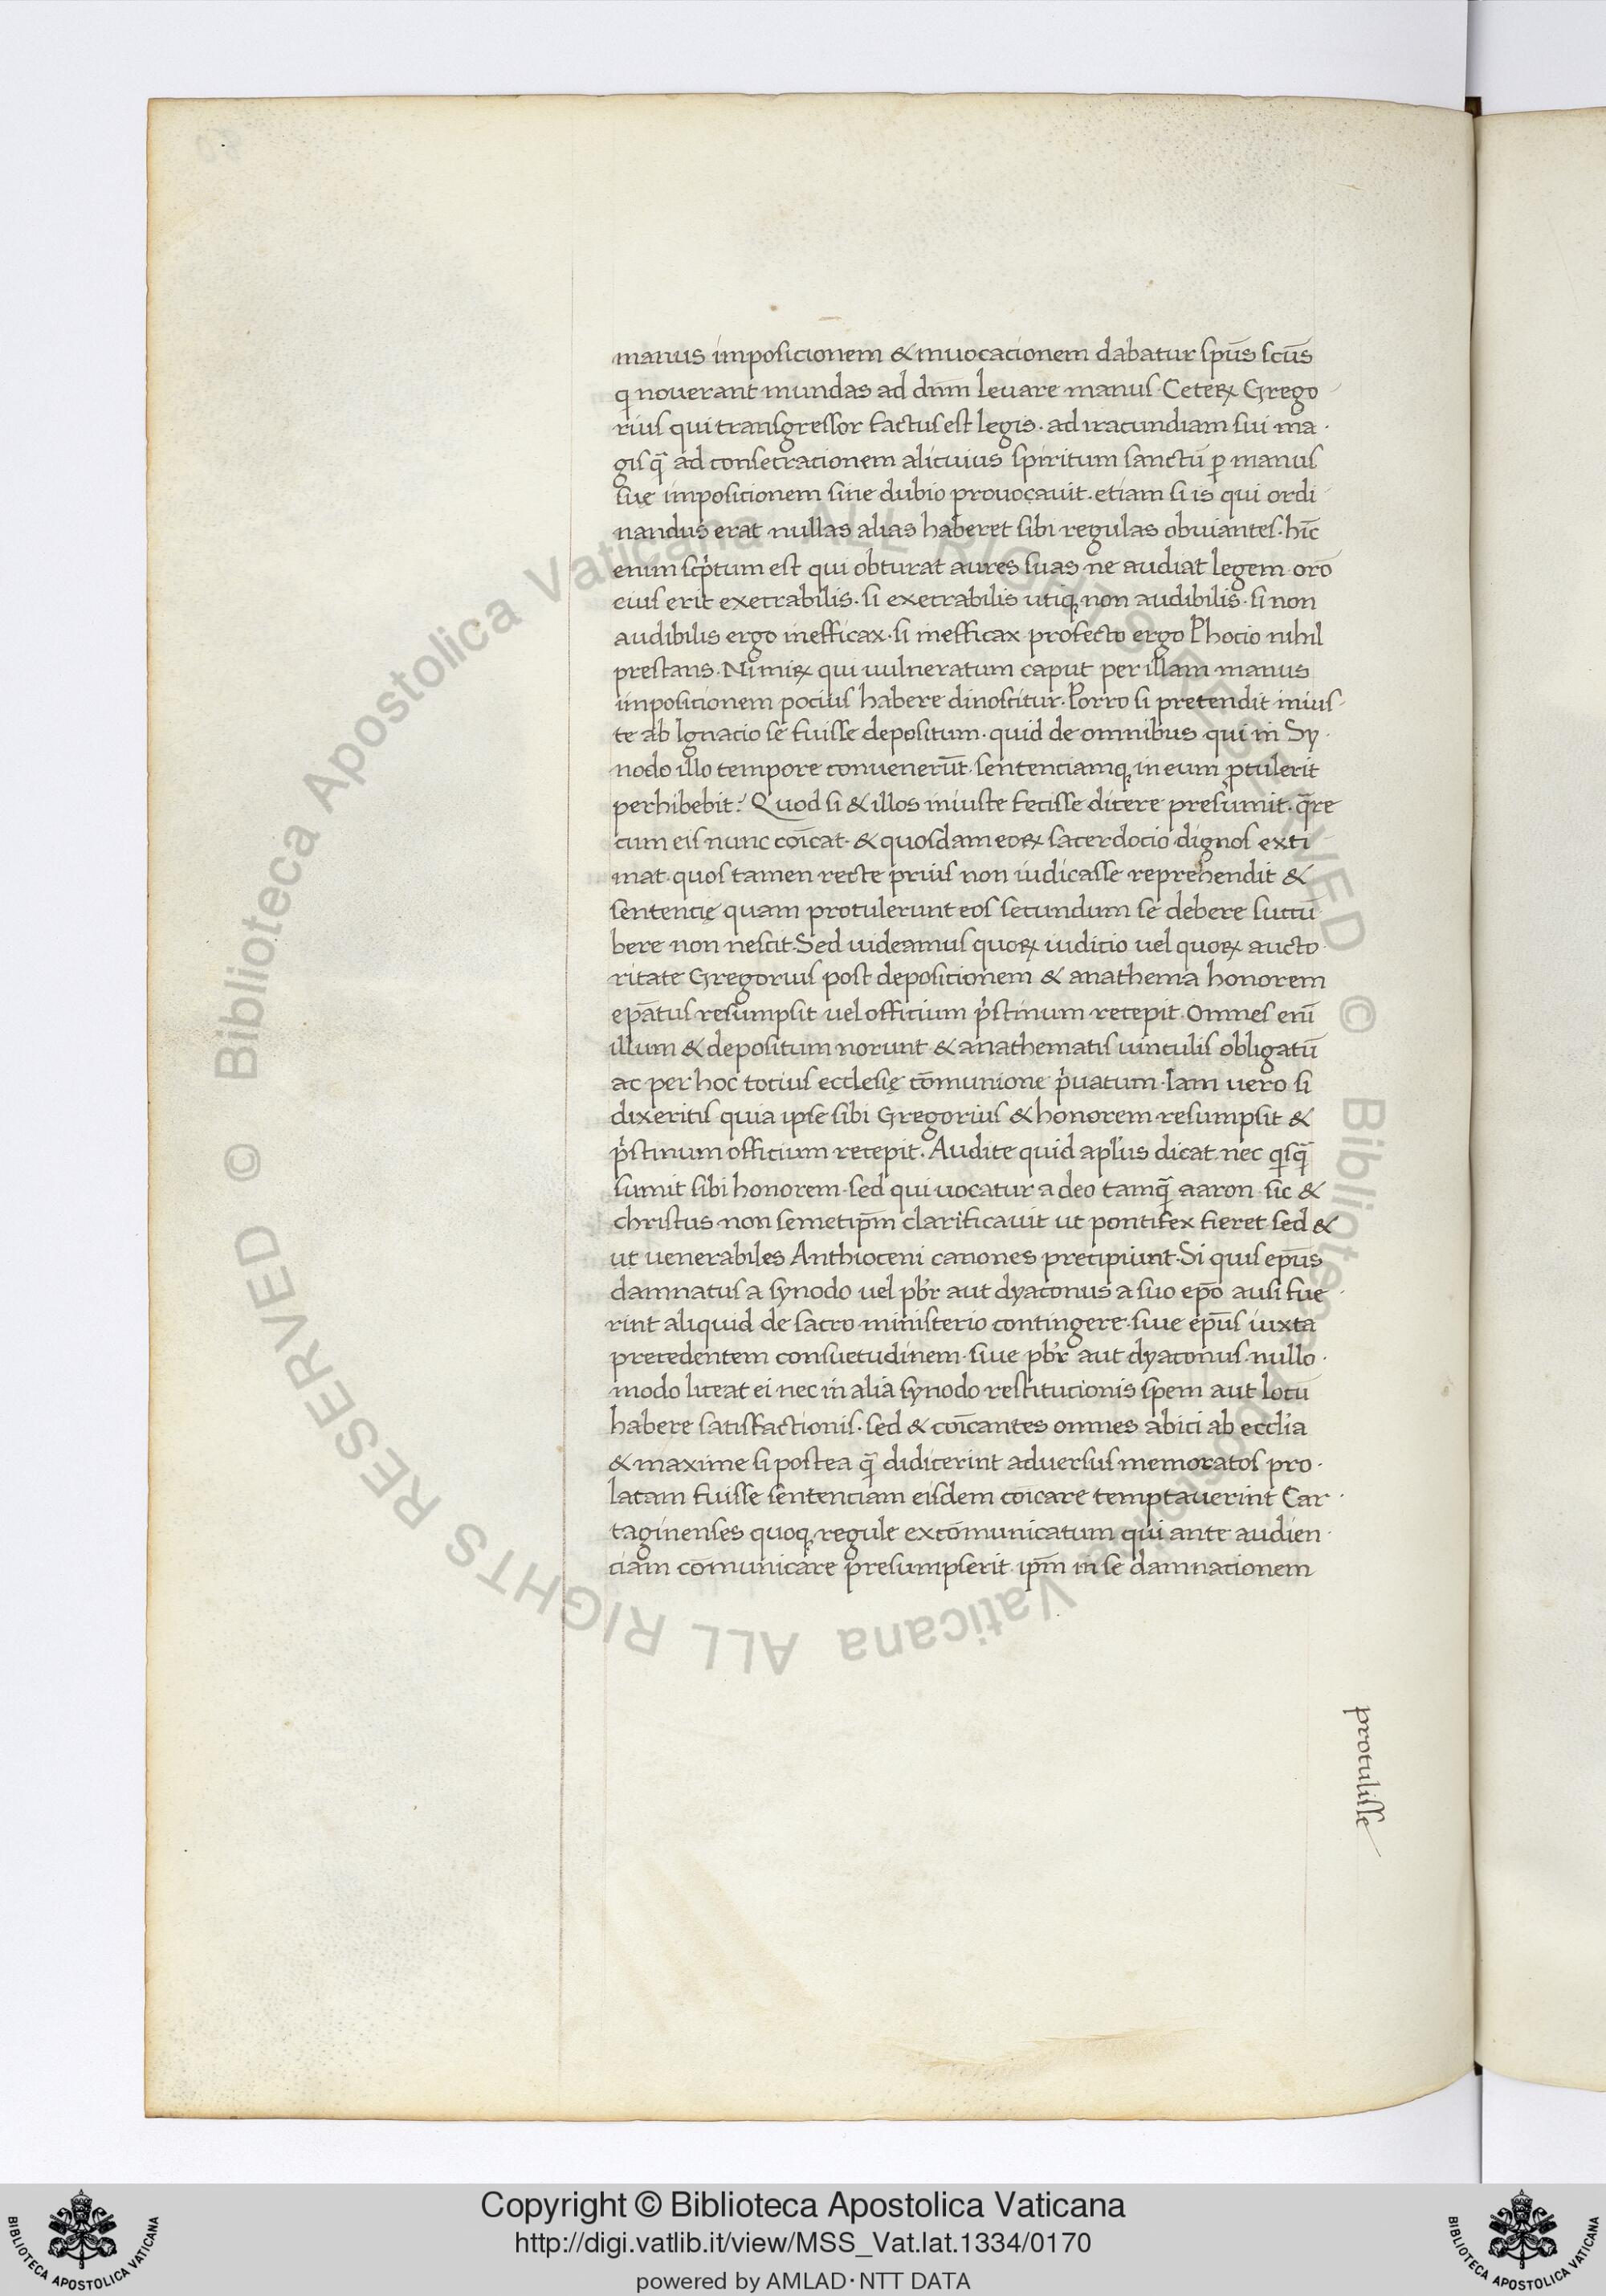 manus imposicionem & inuocacionem dabatur sp̄us sc̄us
q nouerant mundas ad dn̄m leuare manus. Ceteꝝ Grego
rius qui transgressor factus est legis. ad iracundiam sui ma
gis q̄ ad consecracionem alicuius spiritum sanctū ꝑ manus
suę imposicionem sine dubio prouocauit. etiam si is qui ordi
nandus erat nullas alias haberet sibi regulas obuiantes. hīc
enim scͥptum est qui obturat aures suas ne audiat legem orō
eius erit execrabilis. si execrabilis utiqꝫ non audibilis. si non
audibilis ergo inefficax. si inefficax profecto ergo Phocio nihil
prestans. Nimiꝝ qui uulneratum caput per illam manus
imposicionem pocius habere dinoscitur. Porro si pretendit inius
te ab Ignacio se fuisse depositum. quid de omnibus qui in Sy
nodo illo tempore conuenerūt. sentenciamqꝫ in eum ꝓtulerit
perhibebit? Quod si & illos iniuste fecisse dicere presumit. q̄re
cum eis nunc coīcat. & quosdam eoꝝ sacerdocio dignos exti
mat. quos tamen recte prius non iudicasse reprehendit &
sentencię quam protulerunt eos secundum se debere succū
bere non nescit. Sed uideamus quoꝝ iudicio uel quoꝝ aucto
ritate Gregorius post deposicionem & anathema honorem
ep̄atus resumpsit uel officium pͥstinum recepit. Omnes enī
illum & depositum norunt & anathematis uinculis obligatū
ac per hoc tocius ecclesię cōmunione pͥuatum. Iam uero si
dixeritis quia ipse sibi Gregorius & honorem resumpsit &
pͥstinum officium recepit. Audite quid apl'us dicat. nec qͥsq̄
sumit sibi honorem. sed qui uocatur a deo tamq̄ aaron. sic &
christus non semetip̄m clarificauit ut pontifex fieret sed &
ut uenerabiles Anthioceni canones precipiunt. Si quis ep̄us
damnatus a synodo uel pb'r aut dyaconus a suo ep̄o ausi fue
rint aliquid de sacro ministerio contingere. siue ep̄us iuxta
precedentem consuetudinem. siue pb'r aut dyaconus. nullo
modo liceat ei nec in alia synodo restitucionis spem aut locū
habere satisfactionis. sed & coīcantes omnes abici ab eccl'ia
& maxime si postea q̄ didicerint aduersus memoratos pro
latam fuisse sentenciam eisdem coīcare temptauerint Car
taginenses quoqꝫ regule excōmunicatum qui ante audien
ciam comunicare presumpserit. ip̄m in se damnacionem
protulisse
Copyright © Biblioteca Apostolica Vaticana
http://digi.vatlib.it/view/MSS_Vat.lat.1334/0170
powered by AMLAD·NTT DATA
BIBLIOTECA APOSTOLICA VATICANA
BIBLIOTECA APOSTOLICA VATICANA
© Biblioteca Apostolica Vaticana ALL RIGHTS RESERVED © Biblioteca Apostolica Vaticana ALL RIGHTS RESERVED